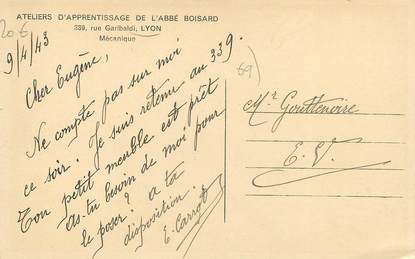 ATELIERS D'APPRENTISSAGE DE L'ABBÉ BOISARD
339, rue Garibaldi, LYON
Mécanique
20€
9/4/43
Cher Eugène,
Ne compte pas sur moi
ce soir. Je suis retenu au 339.
Ton petit meuble est prêt
as-tu besoin de moi pour
le poser? a ta
disposition.
E. Carrot
69)
Mr Gouttenoire
E. V.